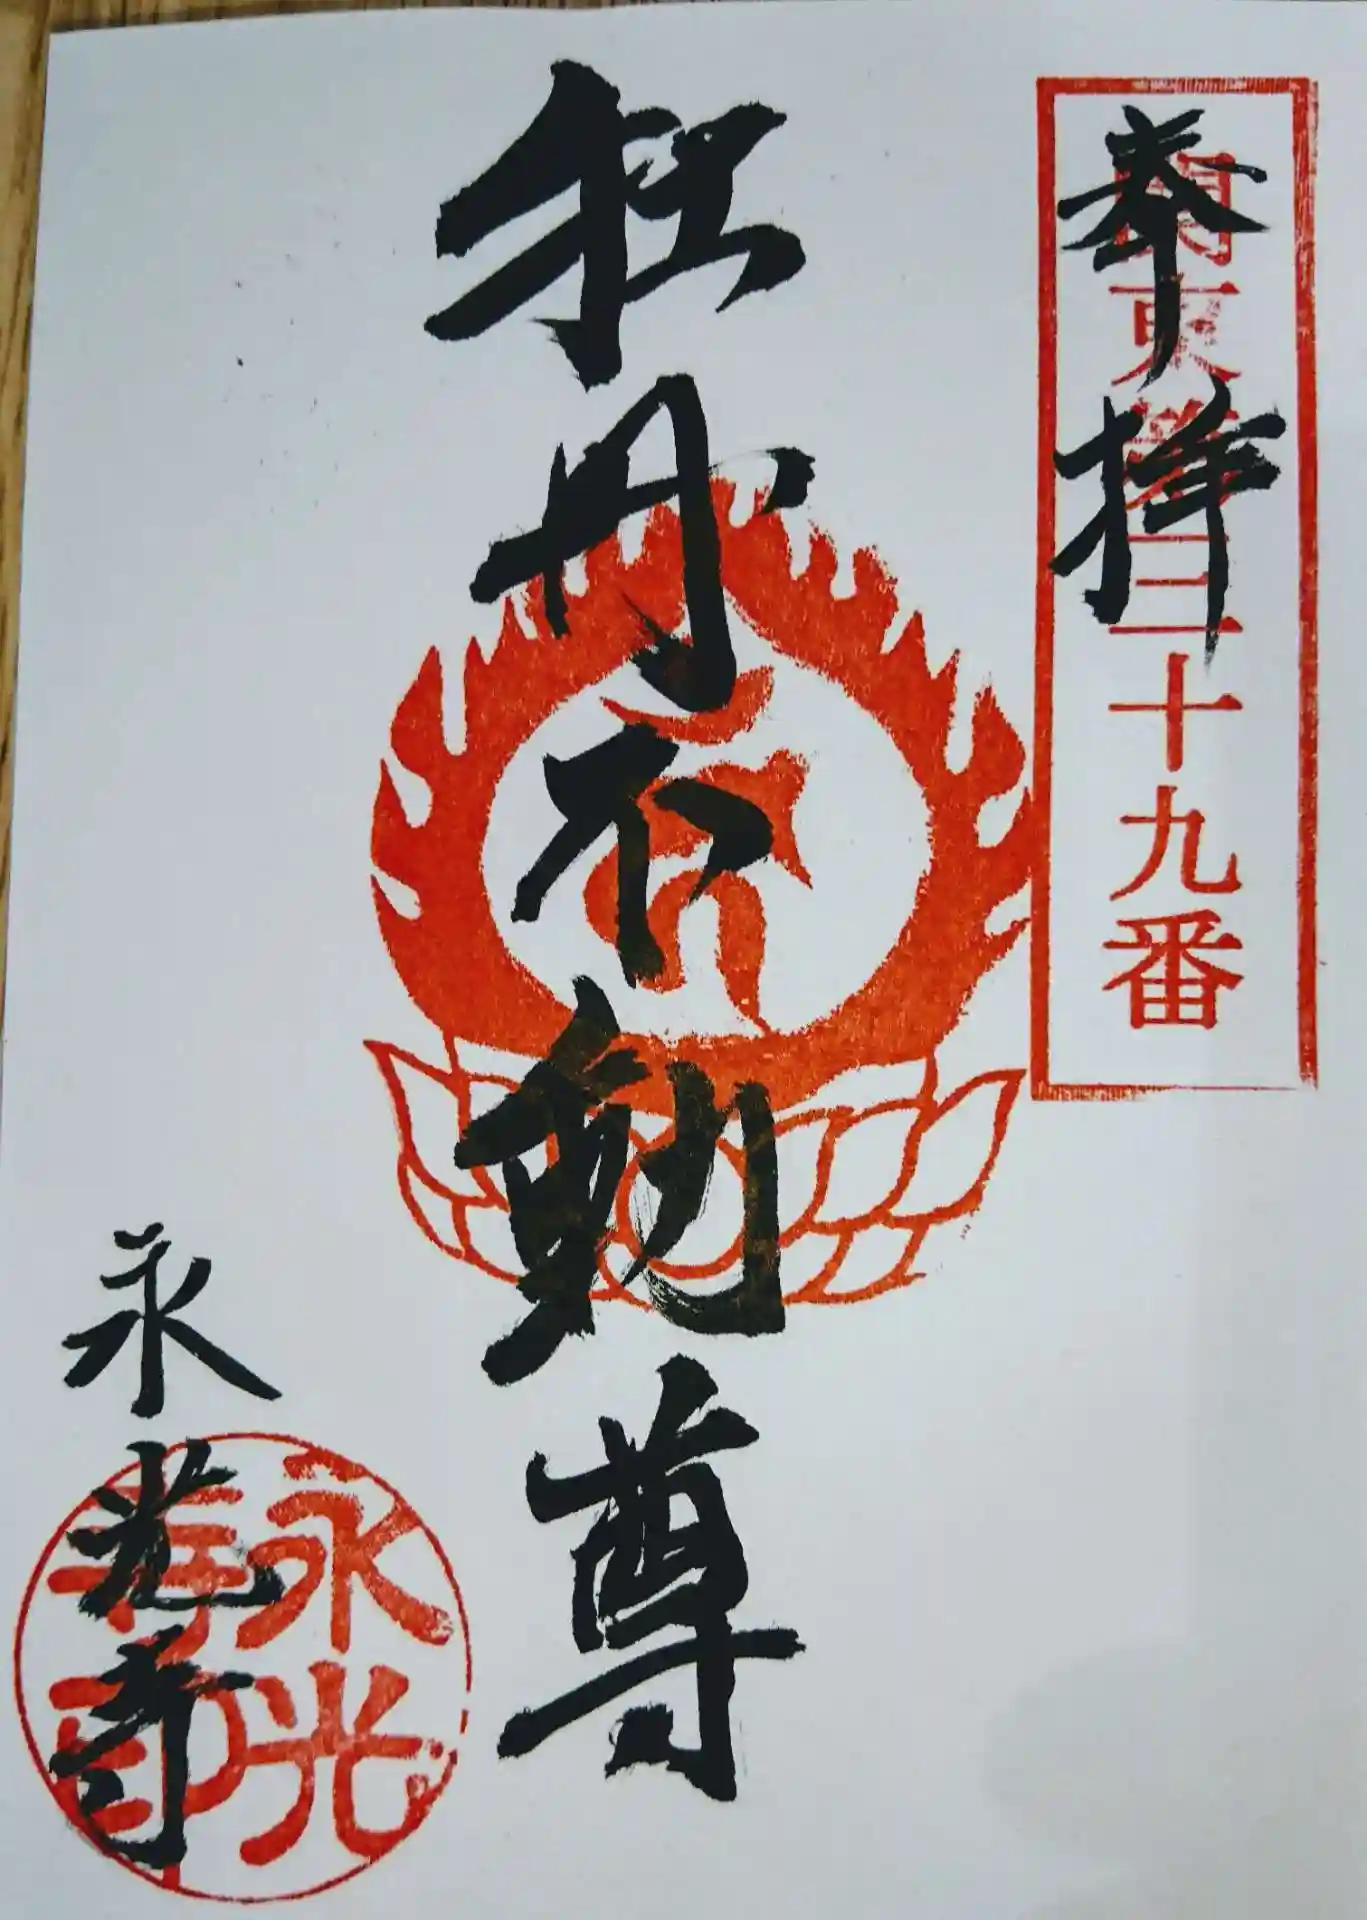 奉拝
関東第三十九番
牡丹不動尊
永光寺
永光
寺印